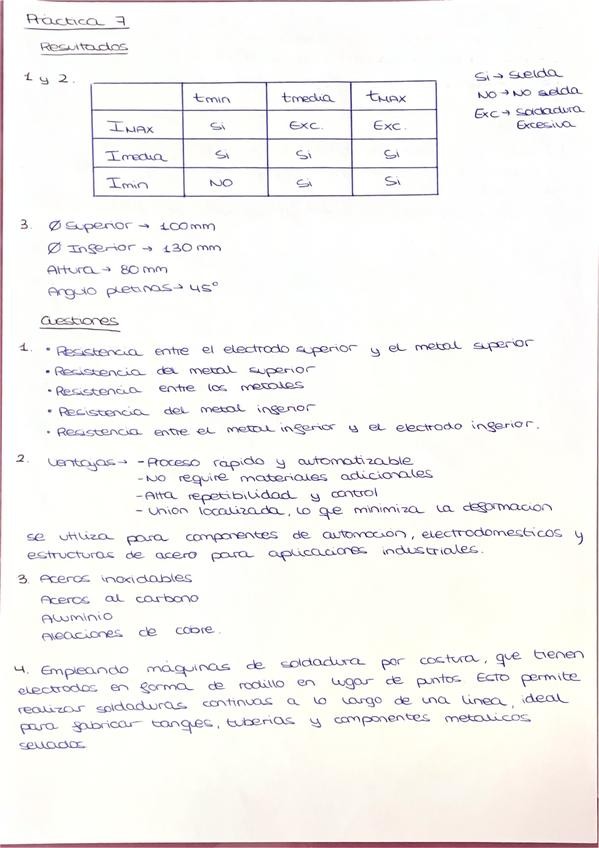 Práctica 7
Resultados
1 y 2.
tmin tmedia tMAX
IMAX Si Exc. Exc.
Imedia Si Si Si
Imin NO Si Si
Si → Suelda
NO → NO suelda
Exc → Soldadura
Excesiva
3. Ø Superior → 100mm
Ø Inferior → 130 mm
Altura → 80 mm
Angulo pletinas → 45°
Cuestiones
1. • Resistencia entre el electrodo superior y el metal superior
• Resistencia del metal superior
• Resistencia entre los metales
• Resistencia del metal inferior
• Resistencia entre el metal inferior y el electrodo inferior.
2. Ventajas → - Proceso rapido y automatizable
- No require materiales adicionales
- Alta repetibilidad y control
- Union localizada, lo que minimiza la deformacion
se utiliza para componentes de automocion, electrodomesticos y
estructuras de acero para aplicaciones industriales.
3. Aceros inoxidables
Aceros al carbono
Aluminio
Aleaciones de cobre.
4. Empleando máquinas de soldadura por costura, que tienen
electrodos en forma de rodillo en lugar de puntos. Esto permite
realizar soldaduras continuas a lo largo de una linea, ideal
para fabricar tanques, tuberias y componentes metalicos
sellados